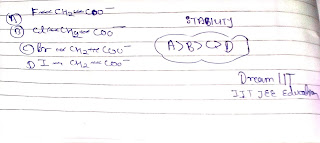 A) F←CH2←COO⁻
B) Cl←CH2←COO⁻
C) Br←CH2←COO⁻
D) I←CH2←COO⁻
STABILITY
A>B>C>D
Dream IIT
IIT JEE Education